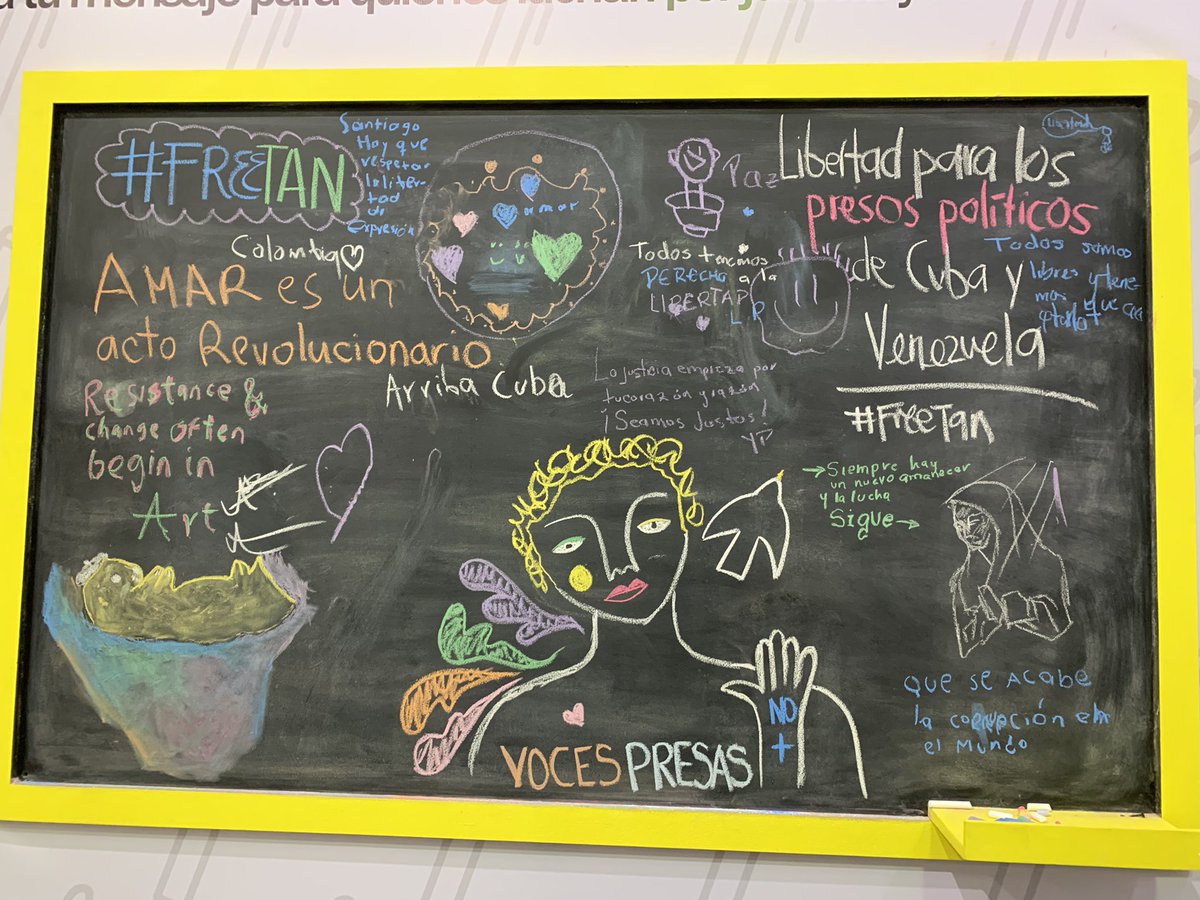 tu mensaje para quienes luchan por
#FREETAN
Santiago
Hay que
respetar
la liber-
tad
de
Expresión
Colombia
AMAR es un
acto Revolucionario
Resistance &
change often
begin in
Art
amor
Arriba Cuba
Paz
Todos tenemos
DERECHO a la
LIBERTAD
La justicia empieza por
tu corazón y razón
¡Seamos Justos!
Libertad para los
presos políticos
de Cuba y
Venezuela
#FreeTan
Todos somos
libres y tene
mos que
→Siempre hay
un nuevo amanecer
y la lucha
Sigue→
NO
+
VOCES PRESAS
QUE SE ACABE
la corrupción en
el Mundo